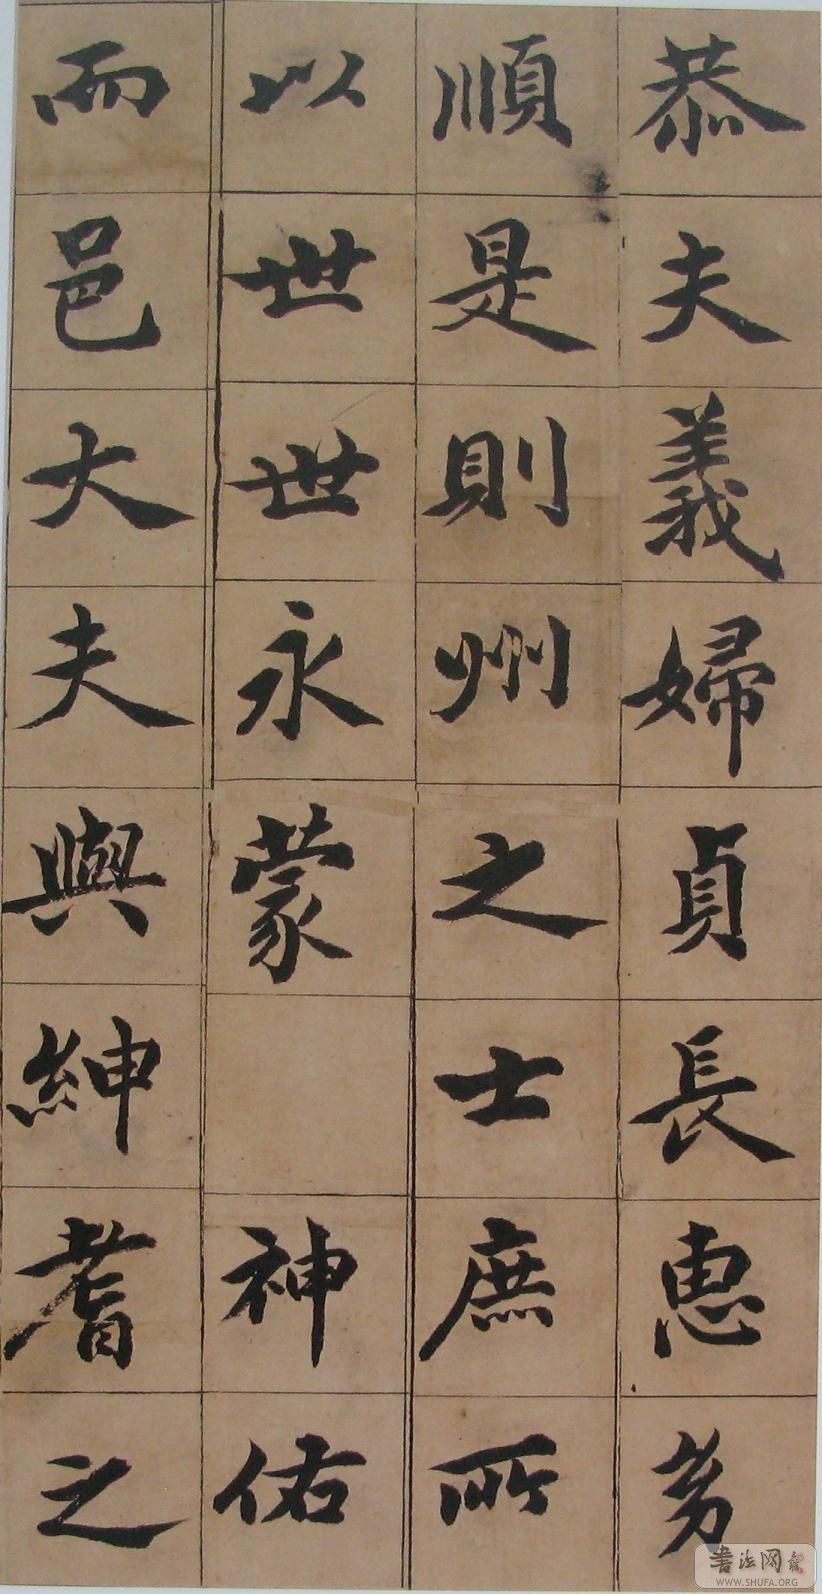 恭夫義婦貞長惠幼
順是則州之士庶所
以世世永蒙　神佑
而邑大夫與紳耆之
書法网
WWW.SHUFA.ORG